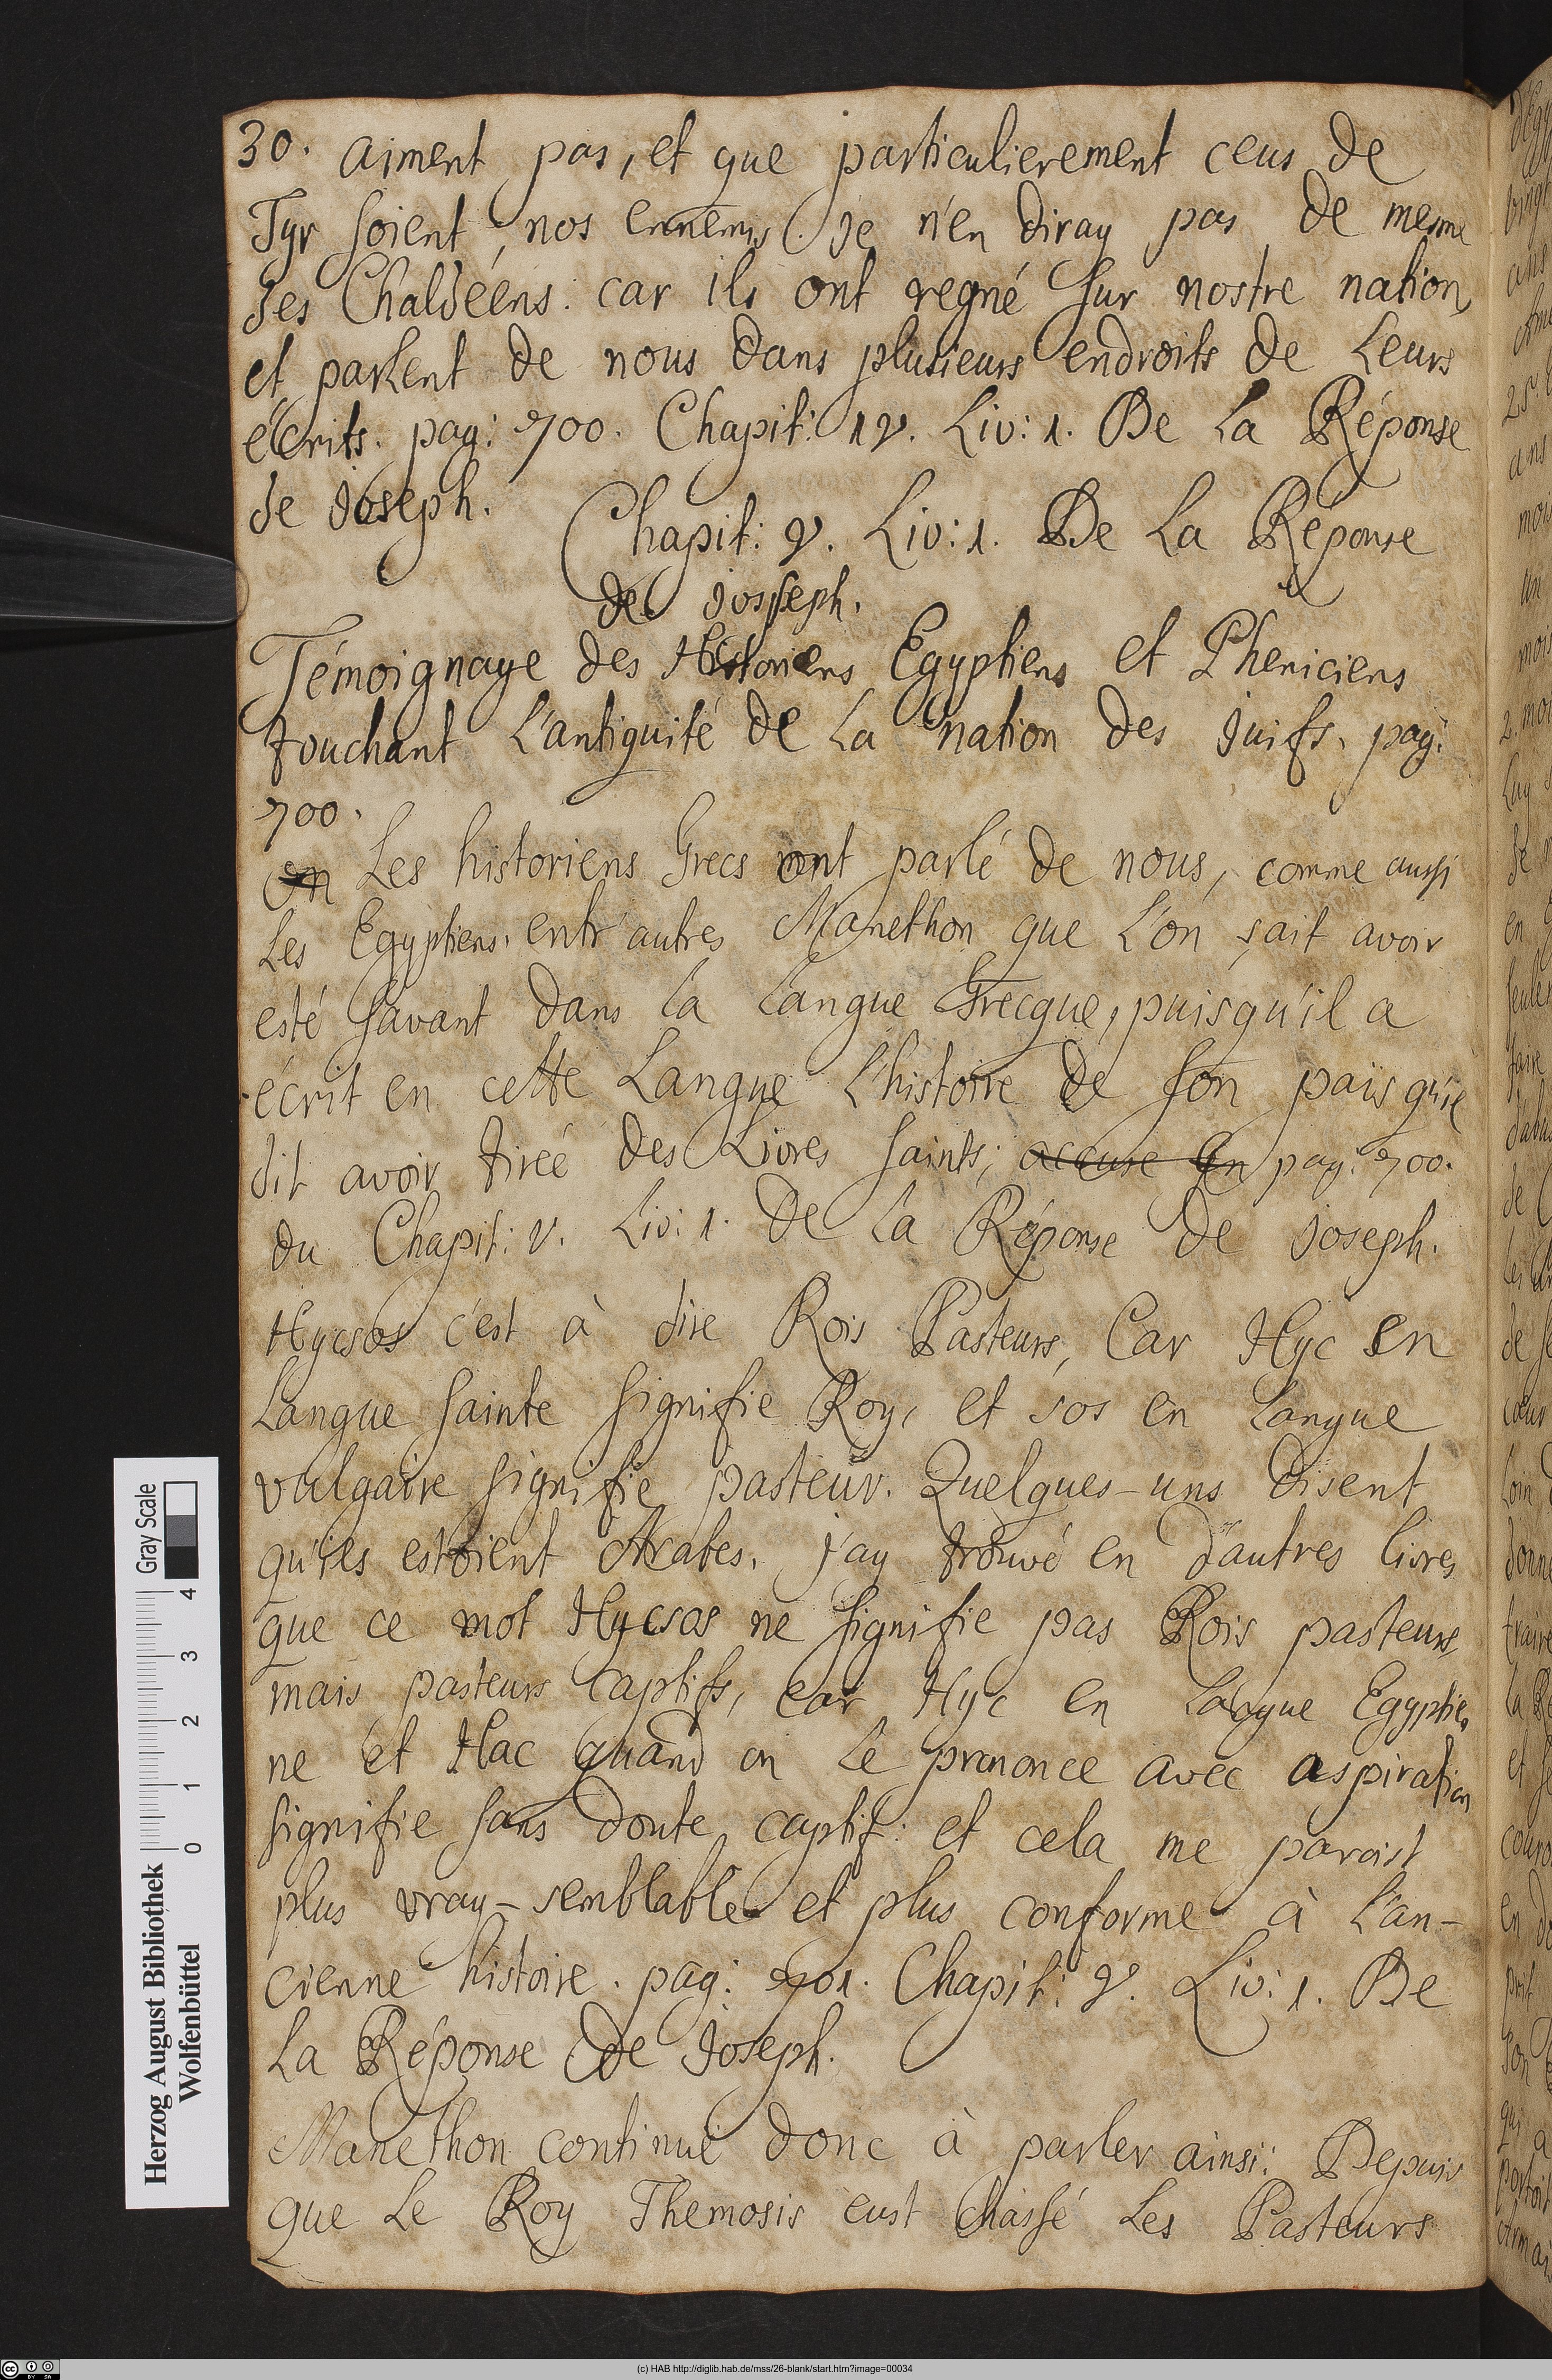 30. aiment pas, et que particulierement ceus de
Tyr soient nos ennemis. je n'en diray pas de mesme
des Chaldéens. car ils ont regné sur nostre nation,
et parlent de nous dans plusieurs endroits de Leurs
écrits. pag: 700. Chapit: IV. Liv: 1. De La Réponse
de Joseph.
Chapit: V. Liv: 1. De La Réponse
de Josseph.
Témoignage des Historiens Egyptiens et Pheniciens
touchant L'antiquité de La nation des juifs. pag:
700.
on Les historiens Grecs ont parlé de nous, comme aussi
Les Egyptiens. entr'autres Manethon que L'on sçait avoir
esté savant dans La Langue Grecque, puisqu'il a
écrit en cette Langue L'histoire de son païs qu'il
dit avoir tireé des Livres saints; accuse en pag: 700.
du Chapit: V. Liv: 1. De La Réponse De Joseph.
Hycsos c'est à dire Rois Pasteurs, Car Hyc en
Langue sainte signifie Roy, et sos en Langue
vulgaire signifie pasteur. Quelques-uns Disent
qu'ils estoient Arabes. j'ay trouvé en d'autres livres
que ce mot Hycsos ne signifie pas Rois pasteurs,
mais pasteurs Captifs, car Hyc en Langue Egyptien
ne et Hac quand on Le prononce avec aspiration
signifie sans doute captif: et cela me paroist
plus vray-semblable et plus conforme à L'an-
cienne histoire. pag: 701. Chapit: V. Liv: 1. De
La Réponse De Joseph.
Manethon continuë donc à parler ainsi: Depuis
que Le Roy Themosis eust chassé Les Pasteurs
Gray Scale
0 1 2 3 4
Herzog August Bibliothek
Wolfenbüttel
(c) HAB http://diglib.hab.de/mss/26-blank/start.htm?image=00034